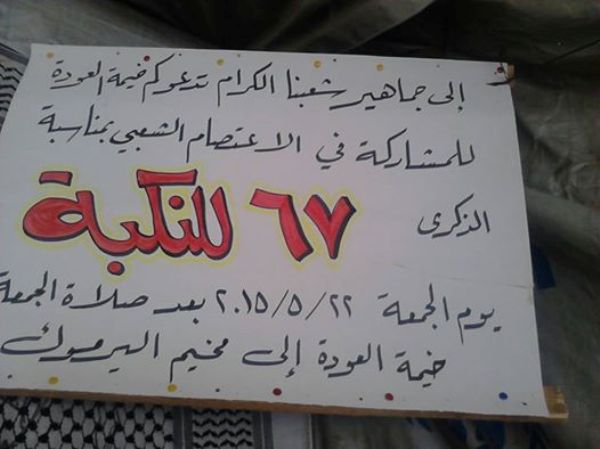 إلى جماهير شعبنا الكرام تدعوكم خيمة العودة
للمشاركة في الاعتصام الشعبي بمناسبة
الذكرى ٦٧ للنكبة
يوم الجمعة ٢٠١٥/٥/٢٢ بعد صلاة الجمعة
خيمة العودة إلى مخيم اليرموك